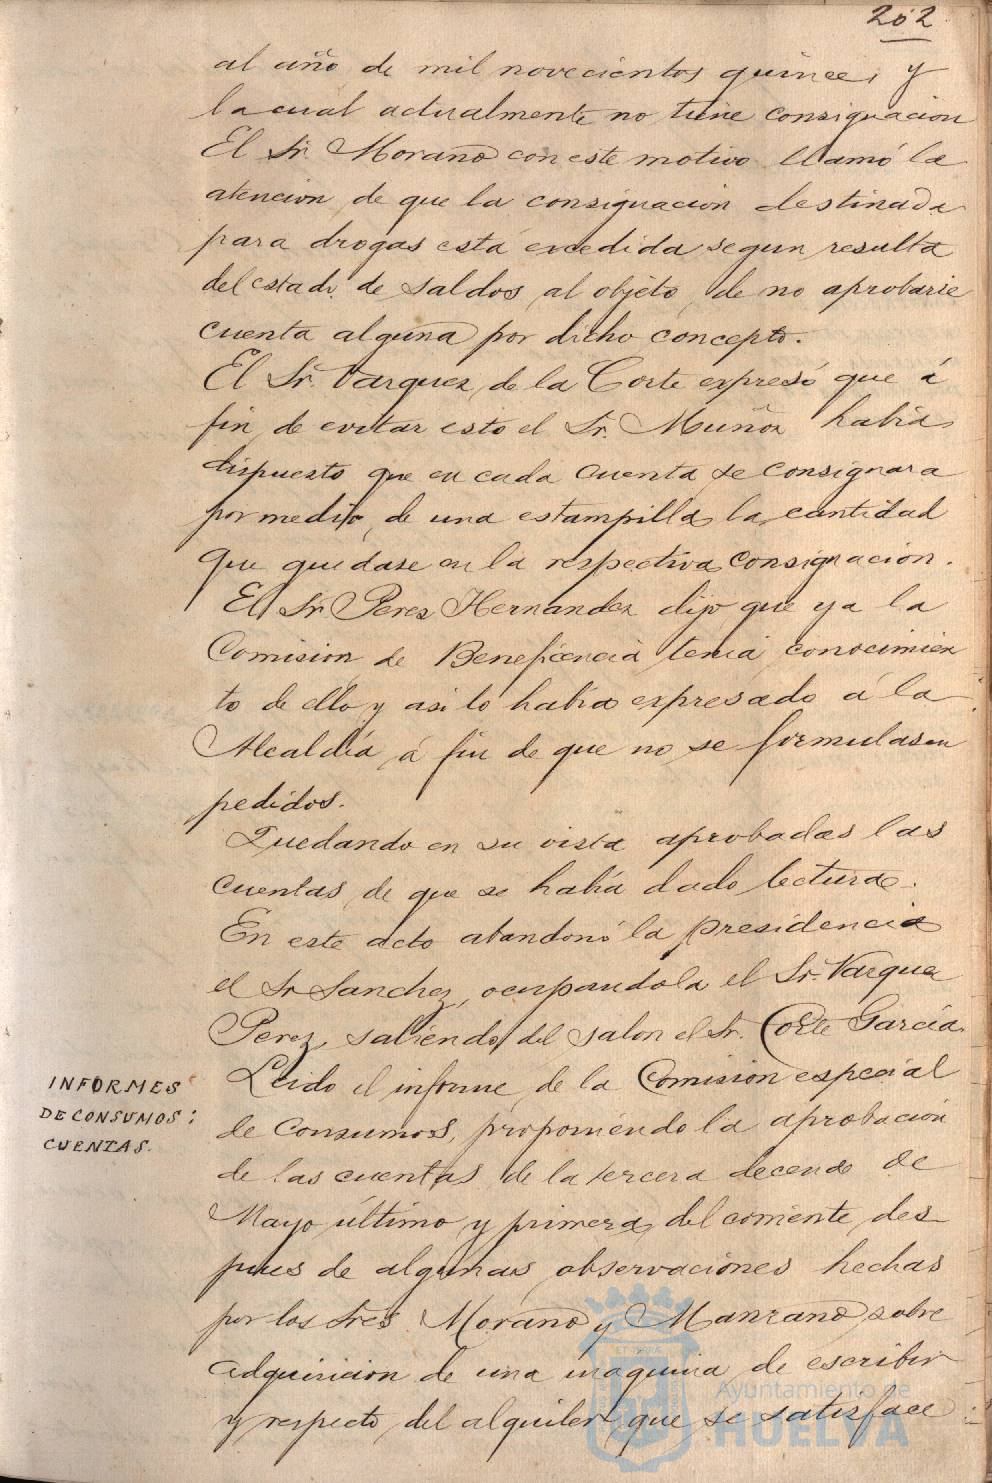 202
al año de mil novecientos quince, y
la cual actualmente no tiene consignacion
El Sr. Morano con este motivo llamó la
atencion de que la consignacion destinada
para drogas está excedida segun resulta
del estado de saldos, al objeto, de no aprobarse
cuenta alguna por dicho concepto.
El Sr. Vazquez de la Corte expresó que á
fin de evitar esto el Sr. Muñoz había
dispuesto que en cada cuenta se consignara
por medio de una estampilla la cantidad
que quedase en la respectiva consignacion.
El Sr. Perez Hernandez dijo que ya la
Comision de Beneficencia tenia conocimien
to de ello y asi lo habia expresado á la
Alcaldía á fin de que no se formulasen
pedidos.
Quedando en su vista aprobadas las
cuentas de que se había dado lectura.
En este acto abandonó la presidencia
el Sr Sanchez, ocupandola el Sr. Vazquez
Perez, saliendo del salon el Sr. Corte García.
INFORMES
DE CONSUMOS:
CUENTAS.
Leido el informe de la Comision especial
de Consumos, proponiendo la aprobacion
de las cuentas de la tercera decena de
Mayo último y primera del corriente, des
pues de algunas observaciones hechas
por los Sres Morano y Manzano sobre
adquisicion de una maquina de escribir
y respecto del alquiler que se satisface
Ayuntamiento de
HUELVA